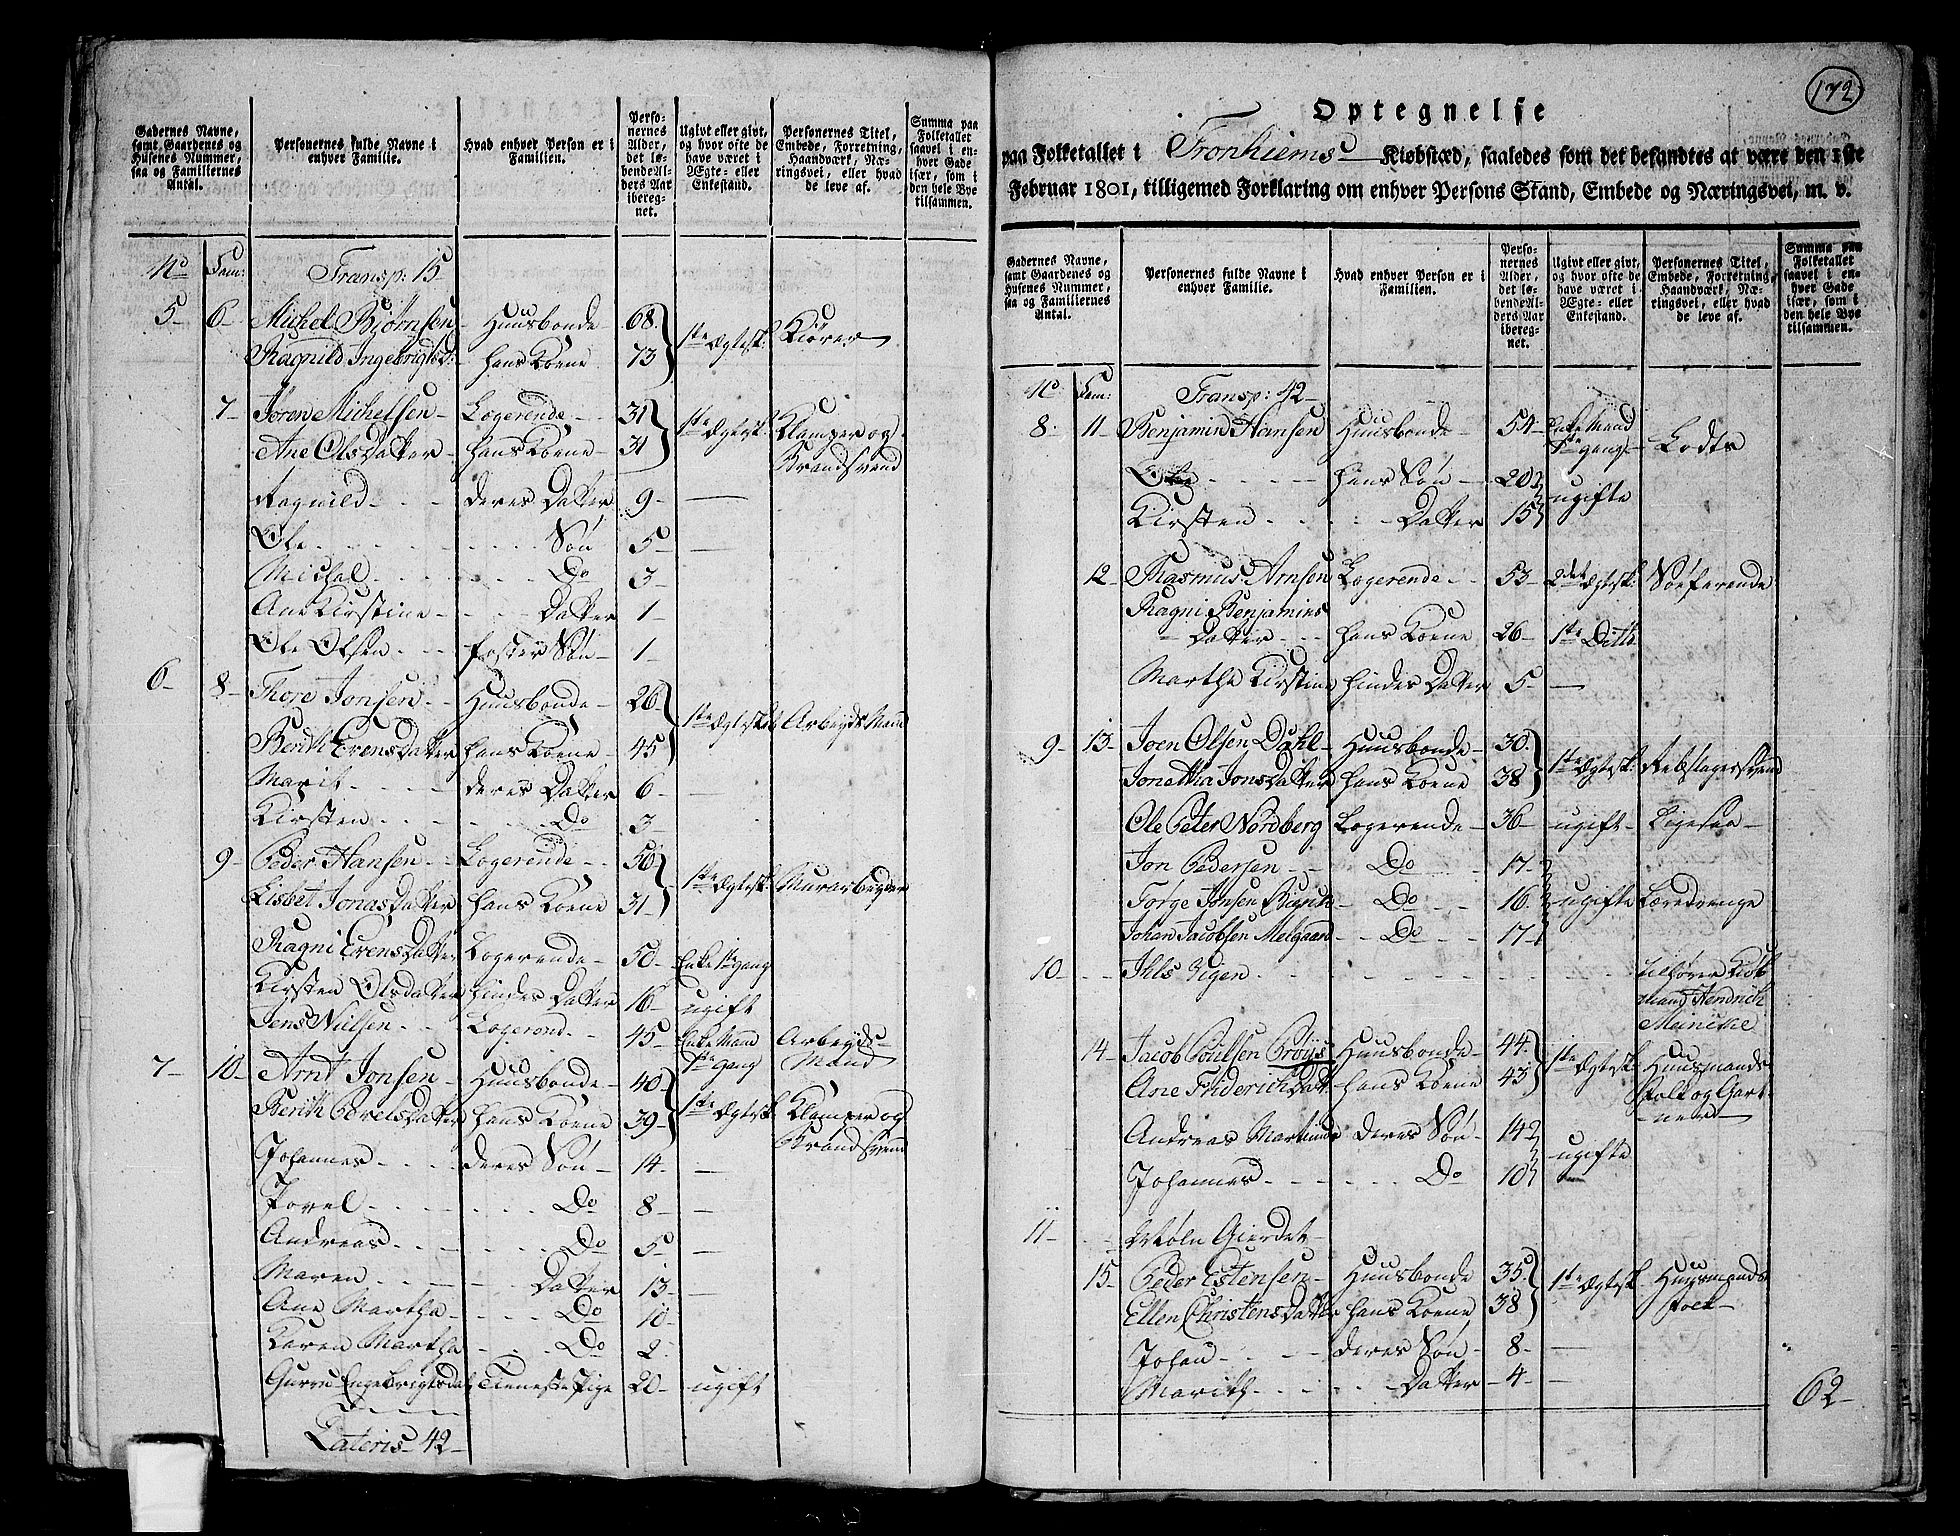 Gadernes Navne, samt Gaardenes og Husenes Nummer, saa og Familiernes Antal.
Personernes fulde Navne i enhver Familie.
Hvad enhver Person er i Familien.
Personernes Alder, det løbende Alders Aar iberegnet.
Ugivt eller givt, og hvor ofte de have været i Ægte- eller Enkestand.
Personernes Titel, Embede, Forretning, Haandværk, Næringsvei, eller hvad de leve af.
Summa paa Folketallet saavel i enhver Gade især, som i den hele Bye tilsammen.
No Fam: Transp: 15
5 - 6 - Michel Biörnsen - Huusbonde - 68 1ste Ægtesk: Kiörer
Ragnild Ingebrigtsd: hans Koene 73
7 - Joren Michelsen - Logerende - 31 1ste Ægtesk: Klamper og Brandsvend
Ane Olsdatter - hans Koene - 31
Ragnild - deres Datter 9 -
Ole - Søn 5 -
Michel - Do 3 -
Ane Kirstine - Datter 1 -
Ole Olsen - foster Søn - 1 -
6 - 8 - Thore Jonsen - Huusbonde - 26 1ste Ægtesk: Arbeyds Mand
Berith Evensdatter hans Koene - 45
Marit - deres Datter 6 -
Kirsten - Do 3 -
9 - Peder Hansen - Logerende - 56 1ste Ægtesk: Murarbeyder
Lisbet Jonasdatter hans Koene 31
Ragni Evensdatter Logerende - 50 - Enke 1ste gang
Kirsten Olsdatter hindes Datter 16 - ugift
Jens Nielsen - Logerend - 45 - Enke Mand 1ste gang Arbeyds Mand
7 - 10 - Arnt Jonsen - Huusbonde - 40 1ste Ægtesk: Klamper og Brandsvend
Berith Povelsdatter hans Koene 39
Johannes - deres Søn - 14 -
Povel - Do 8 -
Andreas - Do 5 -
Maren - Datter 13 -
Ane Martha - Do 10 -
Karen Martha - Do 2 -
Gurru Engebrigtsdat: Tieneste Pige 20 - ugift
Lateris 42
172
Optegnelse
paa Folketallet i Tronhiems Kiøbstæd, saaledes som det befandtes at være den 1ste
Februar 1801, tilligemed Forklaring om enhver Persons Stand, Embede og Næringsvei, m. v.
Gadernes Navne, samt Gaardenes og Husenes Nummer, saa og Familiernes Antal.
Personernes fulde Navne i enhver Familie.
Hvad enhver Person er i Familien.
Personernes Alder, det løbende Alders Aar iberegnet.
Ugivt eller givt, og hvor ofte de have været i Ægte- eller Enkestand.
Personernes Titel, Embede, Forretning, Haandværk, Næringsvei, eller hvad de leve af.
Summa paa Folketallet saavel i enhver Gade især, som i den hele Bye tilsammen.
No Fam: Transp: 42
8 - 11 - Benjamin Hansen Huusbonde - 54 - Enke Mand 1ste gang - Lodts
Ole - hans Søn 20 ugifte
Kirsten - Datter 15
12 - Rasmus Arnsen Logerende - 53 - 2det Ægtesk: Søefarende
Ragni Benjamins
Datter - hans Koene 26 - 1ste Ditto
Marthe Kirstine hindes Datter 5 -
9 - 13 - Joen Olsen Dahl - Huusbonde - 30 1ste Ægtesk: Rebslagersvend
Jonetta Jonsdatter hans Koene 38
Ole Peter Nordberg Logerende - 36 - ugift - Ligesaa -
Jon Pedersen - Do 17 ugifte Læredrenge
Torge Jonsen - Do 16
Johan Jacobsen Melgaard - Do 17
10 - Ihls Vigen - tilhører Kiöb-
mand Hendrich
Meincke
14 - Jacob Poulsen Huusbonde - 44 1ste Ægtesk: Huusmands Folk og Gartner
Ane Friderichdat: hans Koene 43
Andreas Martinus deres Søn - 14 ugifte
Johannes - Do 10
11 - Møln Gierdet
15 - Peder Estensen - Huusbonde 35 1ste Ægtesk: Huusmands Folk
Ellen Christensdatter hans Koene 38
Johan - deres Søn - 8 -
Marith - Datter - 4 -
62